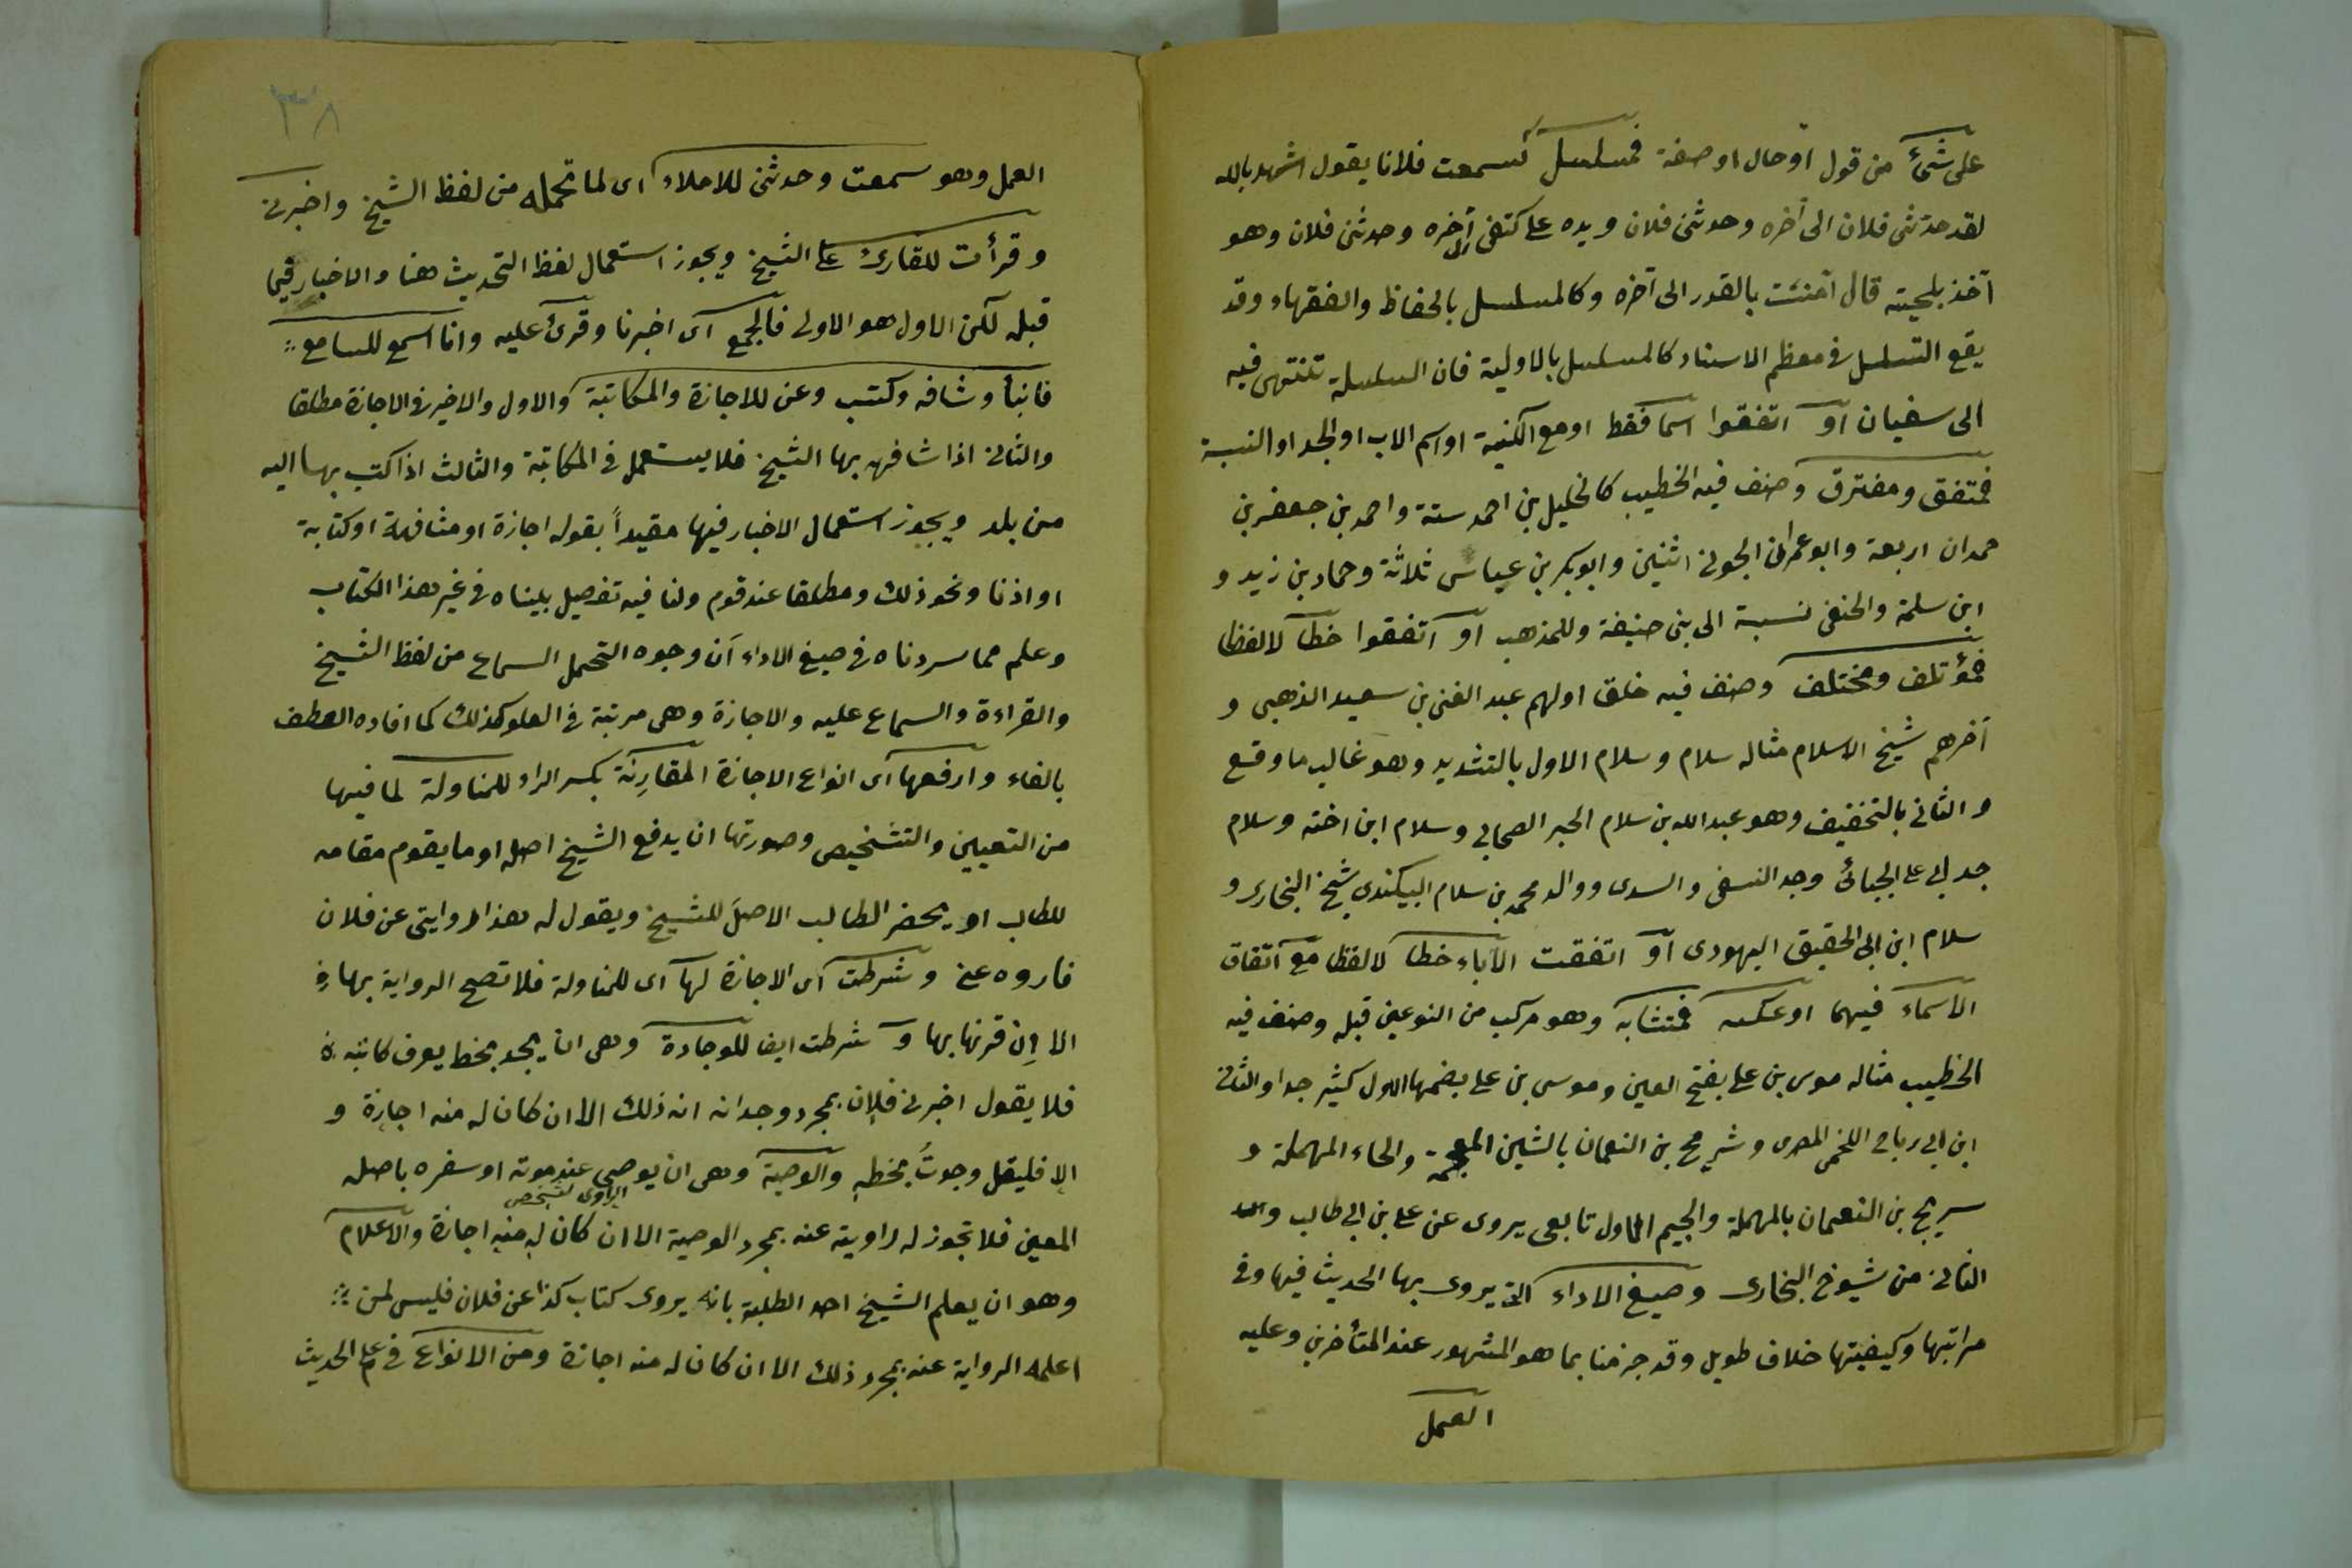 على شئ من قول او حال او صفة فمسلسل كسمعت فلانا يقول اشهد بالله
لقد حدثنى فلان الى آخره وحدثنى فلان ويده على كتفى الى آخره وحدثنى فلان وهو
آخذ بلحيته قال آمنت بالقدر الى آخره وكالمسلسل بالحفاظ والفقهاء وقد
يقع التسلسل فى معظم الاسناد كالمسلسل بالاولية فان السلسلة تنتهى فيه
الى سفيان او اتفقوا اسما فقط او مع الكنية او اسم الاب او الجد او النسبة
فمتفق ومفترق وصنف فيه الخطيب كالخليل بن احمد ستة واحمد بن جعفر بن
حمدان اربعة وابو عمران الجونى اثنين وابو بكر بن عياس ثلاثة وحماد بن زيد و
ابن سلمة والحنفى نسبة الى بنى حنيفة وللمذهب او اتفقوا خطا لا لفظا
فمؤتلف ومختلف وصنف فيه خلق اولهم عبد الغنى بن سعيد الذهبى و
آخرهم شيخ الاسلام مثاله سلام وسلام الاول بالتشديد وهو غالب ما وقع
والثانى بالتخفيف وهو عبد الله بن سلام الحبر الصحابى وسلام ابن اخته وسلام
جد ابى على الجبائى وجد النسفى والسدى ووالد محمد بن سلام البيكندى شيخ البخارى و
سلام ابن ابى الحقيق اليهودى او اتفقت الآباء خطا لا لفظا مع اتفاق
الاسماء فيهما او عكسه فمتشابه وهو مركب من النوعين قبله وصنف فيه
الخطيب مثاله موسى بن على بفتح العين وموسى بن على بضمها الاول كثير جدا والثانى
ابن ابى رباح اللخمى المصرى وشريح بن النعمان بالشين المعجمة والحاء المهملة و
سريج بن النعمان بالمهملة والجيم الاول تابعى يروى عن على بن ابى طالب و
الثانى من شيوخ البخارى وصيغ الاداء التى يروى بها الحديث فيها وفى
مراتبها وكيفيتها خلاف طويل وقد جزمنا بما هو المشهور عند المتأخرين وعليه
العمل
٣٨
العمل وهو سمعت وحدثنى للاملاء اى لما تحمله من لفظ الشيخ واخبرنى
وقرأت للقارئ على الشيخ ويجوز استعمال لفظ التحديث هنا والاخبار فيما
قبله لكن الاول هو الاولى فالجمع اى اخبرنا وقرئ عليه وانا اسمع للسامع
فانبأ وشافه وكتب وعن للاجازة والمكاتبة والاول والاخير فى الاجازة مطلقا
والثانى اذا شافهه بها الشيخ فلا يستعمل فى المكاتبة والثالث اذا كتب بها اليه
من بلد ويجوز استعمال الاخبار فيها مقيداً بقوله اجازة او مشافهة او كتابة
او اذنا ونحو ذلك ومطلقا عند قوم ولنا فيه تفصيل بيناه فى غير هذا الكتاب
وعلم مما سردناه فى صيغ الاداء ان وجوه التحمل السماع من لفظ الشيخ
والقراءة والسماع عليه والاجازة وهى مرتبة فى العلو كذلك كما افاده العطف
بالفاء وارفعها اى انواع الاجازة المقارِنة بكسر الراء للمناولة لما فيها
من التعيين والتشخيص وصورتها ان يدفع الشيخ اصله او ما يقوم مقامه
للطالب او يحضر الطالب الاصل للشيخ ويقول له هذا روايتى عن فلان
فاروه عنى وشرطت اى الاجازة لها اى للمناولة فلا تصح الرواية بها
الا اِن قرنها بها و شرطت ايضا للوجادة وهى ان يجد بخط يعرف كاتبه
فلا يقول اخبرنى فلان بمجرد وجدانه انه ذلك الا ان كان له منه اجازة و
الا فليقل وجدتُ بخطه والوصية وهى ان يوصى عند موته او سفره باصله
الراوى لشخص
المعين فلا تجوز له راويته عنه بمجرد الوصية الا ان كان له منه اجازة والاعلام
وهو ان يعلم الشيخ احد الطلبة بانه يروى كتاب كذا عن فلان فليس لمن
اعلمه الرواية عنه بمجرد ذلك الا ان كان له منه اجازة ومن الانواع فى علم الحديث